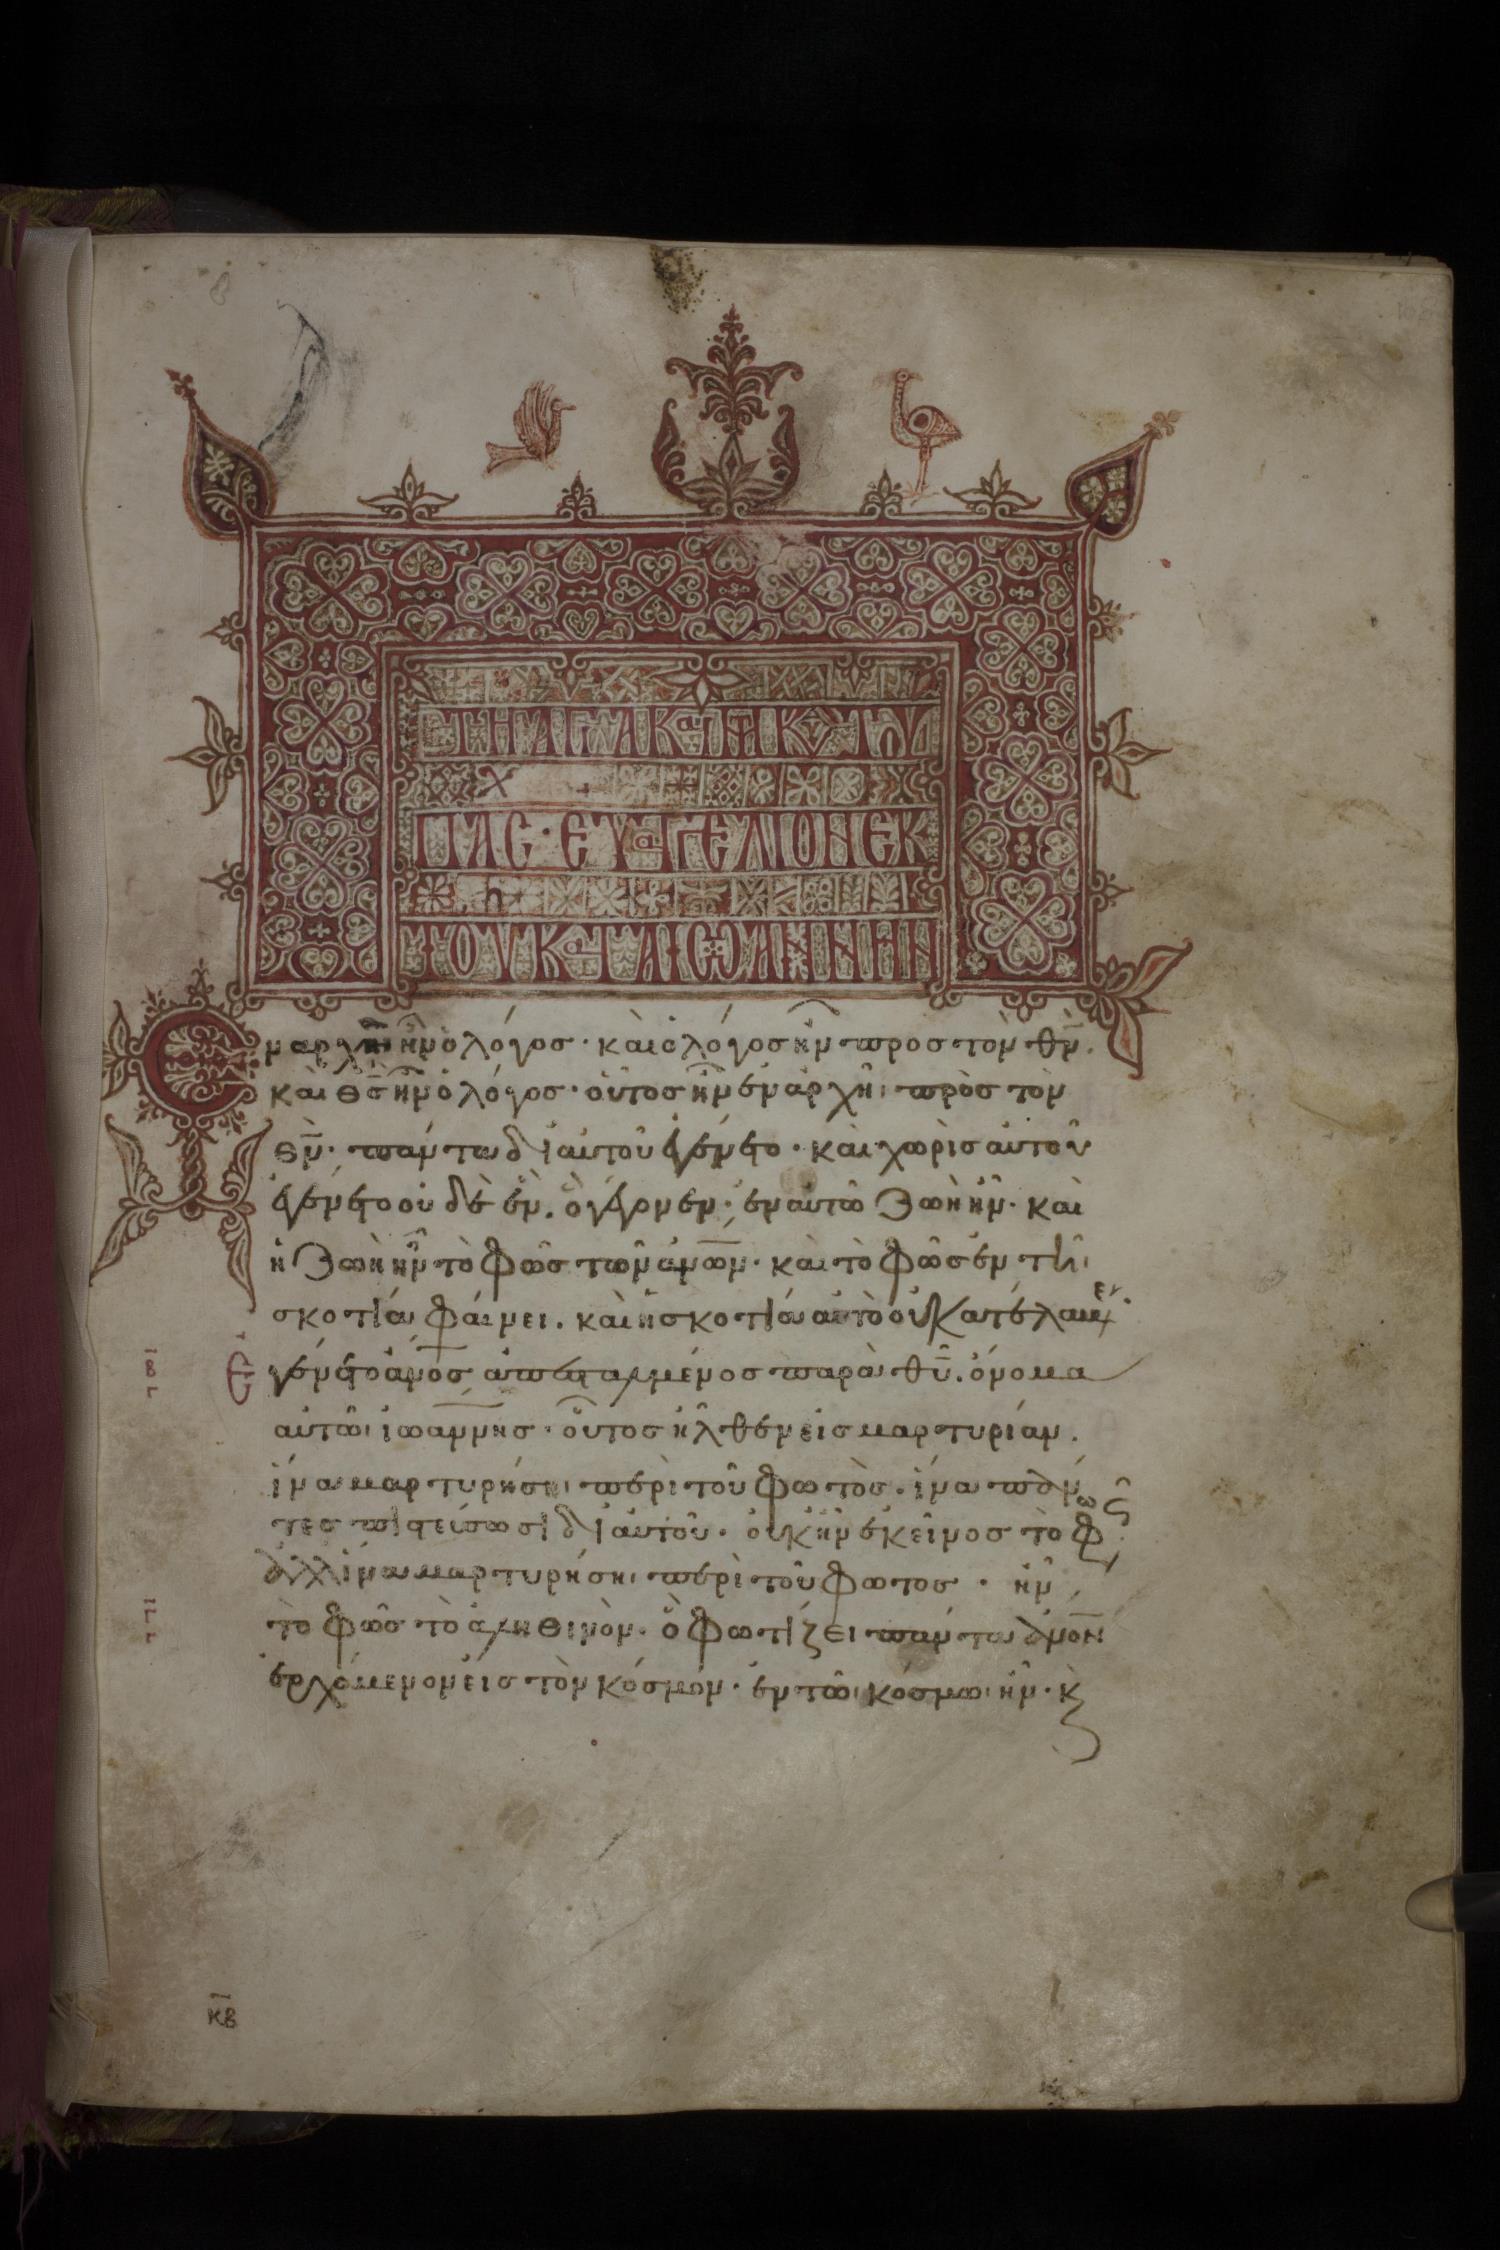 ΤΗ ΑΓΙΑ Κ(αι) ΚΥ ΤΟΥ
ΠΑC · ΕΥΑΓΓΕΛΙΟΝ ΕΚ
ΤΟΥ ΚΑΤΑ ΙΩΑΝΝΗΝ
Ἐν ἀρχῆι ἦν ὁ λόγος · καὶ ὁ λόγος ἦν προς τὸν θν̅ ·
καὶ θς̅ ἦν ὁ λόγος · οὗτος ἦν ἐν ἀρχῆι πρὸς τὸν
θν̅ · πάντα δι αυτοῦ ἐγένετο · καὶ χωρὶς αυτοῦ
ἐγένετο οὐδὲ ἕν . ὃ γέγονεν · ἐν αυτῶ ζωὴ ἦν · καὶ
ἡ ζωὴ ἦν τὸ φῶς τῶν ἀν̅ω̅ν · καὶ τὸ φῶς ἐν τῆι
σκοτία φαίνει . καὶ ἡ σκοτία αὐτὸ οὐ κατέλαβεν ·
Ἐγένετο ἀν̅ο̅ς ἀπεσταλμένος παρὰ θυ̅ . ὄνομα
αὐτῶι ἰωάννης · οὗτος ἦλθεν εἰς μαρτυρίαν .
ἵνα μαρτυρήσηι περὶ τοῦ φωτὸς · ἵνα πάν
τες πιστεύσωσι δι αυτοῦ · οὐκ ἦν ἐκεῖνος τὸ φῶς
ἀλλ ἵνα μαρτυρήσηι περὶ τοῦ φωτος · ἦν
τὸ φῶς τὸ ἀληθινὸν · ὃ φωτίζει πάντα ἀν̅ο̅ν
ἐρχόμενον εἰς τὸν κόσμον · ἐν τῶι κόσμωι ἦν · κ̀
κβ̅